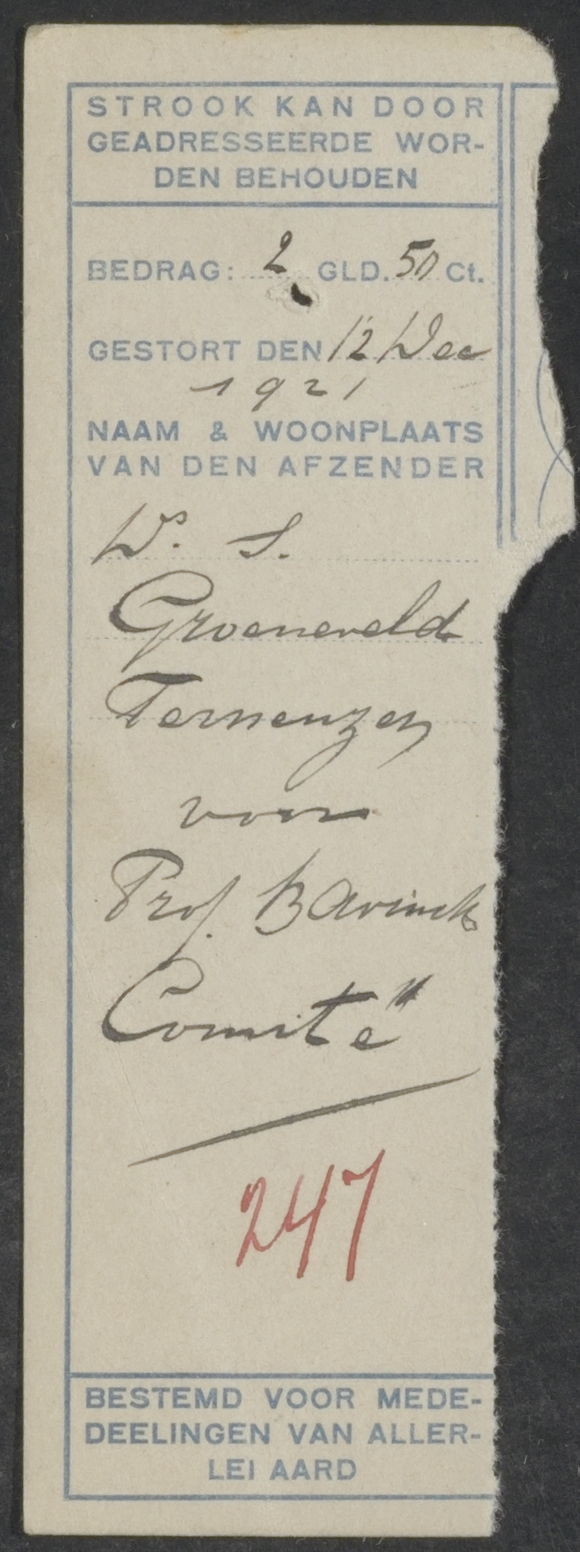 STROOK KAN DOOR
GEADRESSEERDE WOR-
DEN BEHOUDEN
BEDRAG: 2 GLD. 50 Ct.
GESTORT DEN 12 Dec
1921
NAAM & WOONPLAATS
VAN DEN AFZENDER
W. S.
Groeneveld
Terneuzen
voor
Prof. Bavinck
Comité"
247
BESTEMD VOOR MEDE-
DEELINGEN VAN ALLER-
LEI AARD